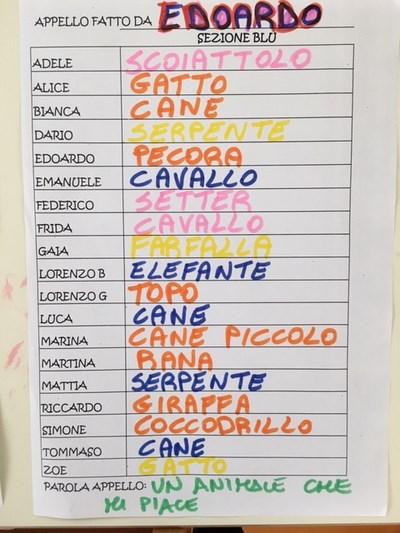 APPELLO FATTO DA EDOARDO
SEZIONE BLU
ADELE SCOIATTOLO
ALICE GATTO
BIANCA CANE
DARIO SERPENTE
EDOARDO PECORA
EMANUELE CAVALLO
FEDERICO SETTER
FRIDA CAVALLO
GAIA FARFALLA
LORENZO B ELEFANTE
LORENZO G TOPO
LUCA CANE
MARINA CANE PICCOLO
MARTINA RANA
MATTIA SERPENTE
RICCARDO GIRAFFA
SIMONE COCCODRILLO
TOMMASO CANE
ZOE GATTO
PAROLA APPELLO: UN ANIMALE CHE
MI PIACE